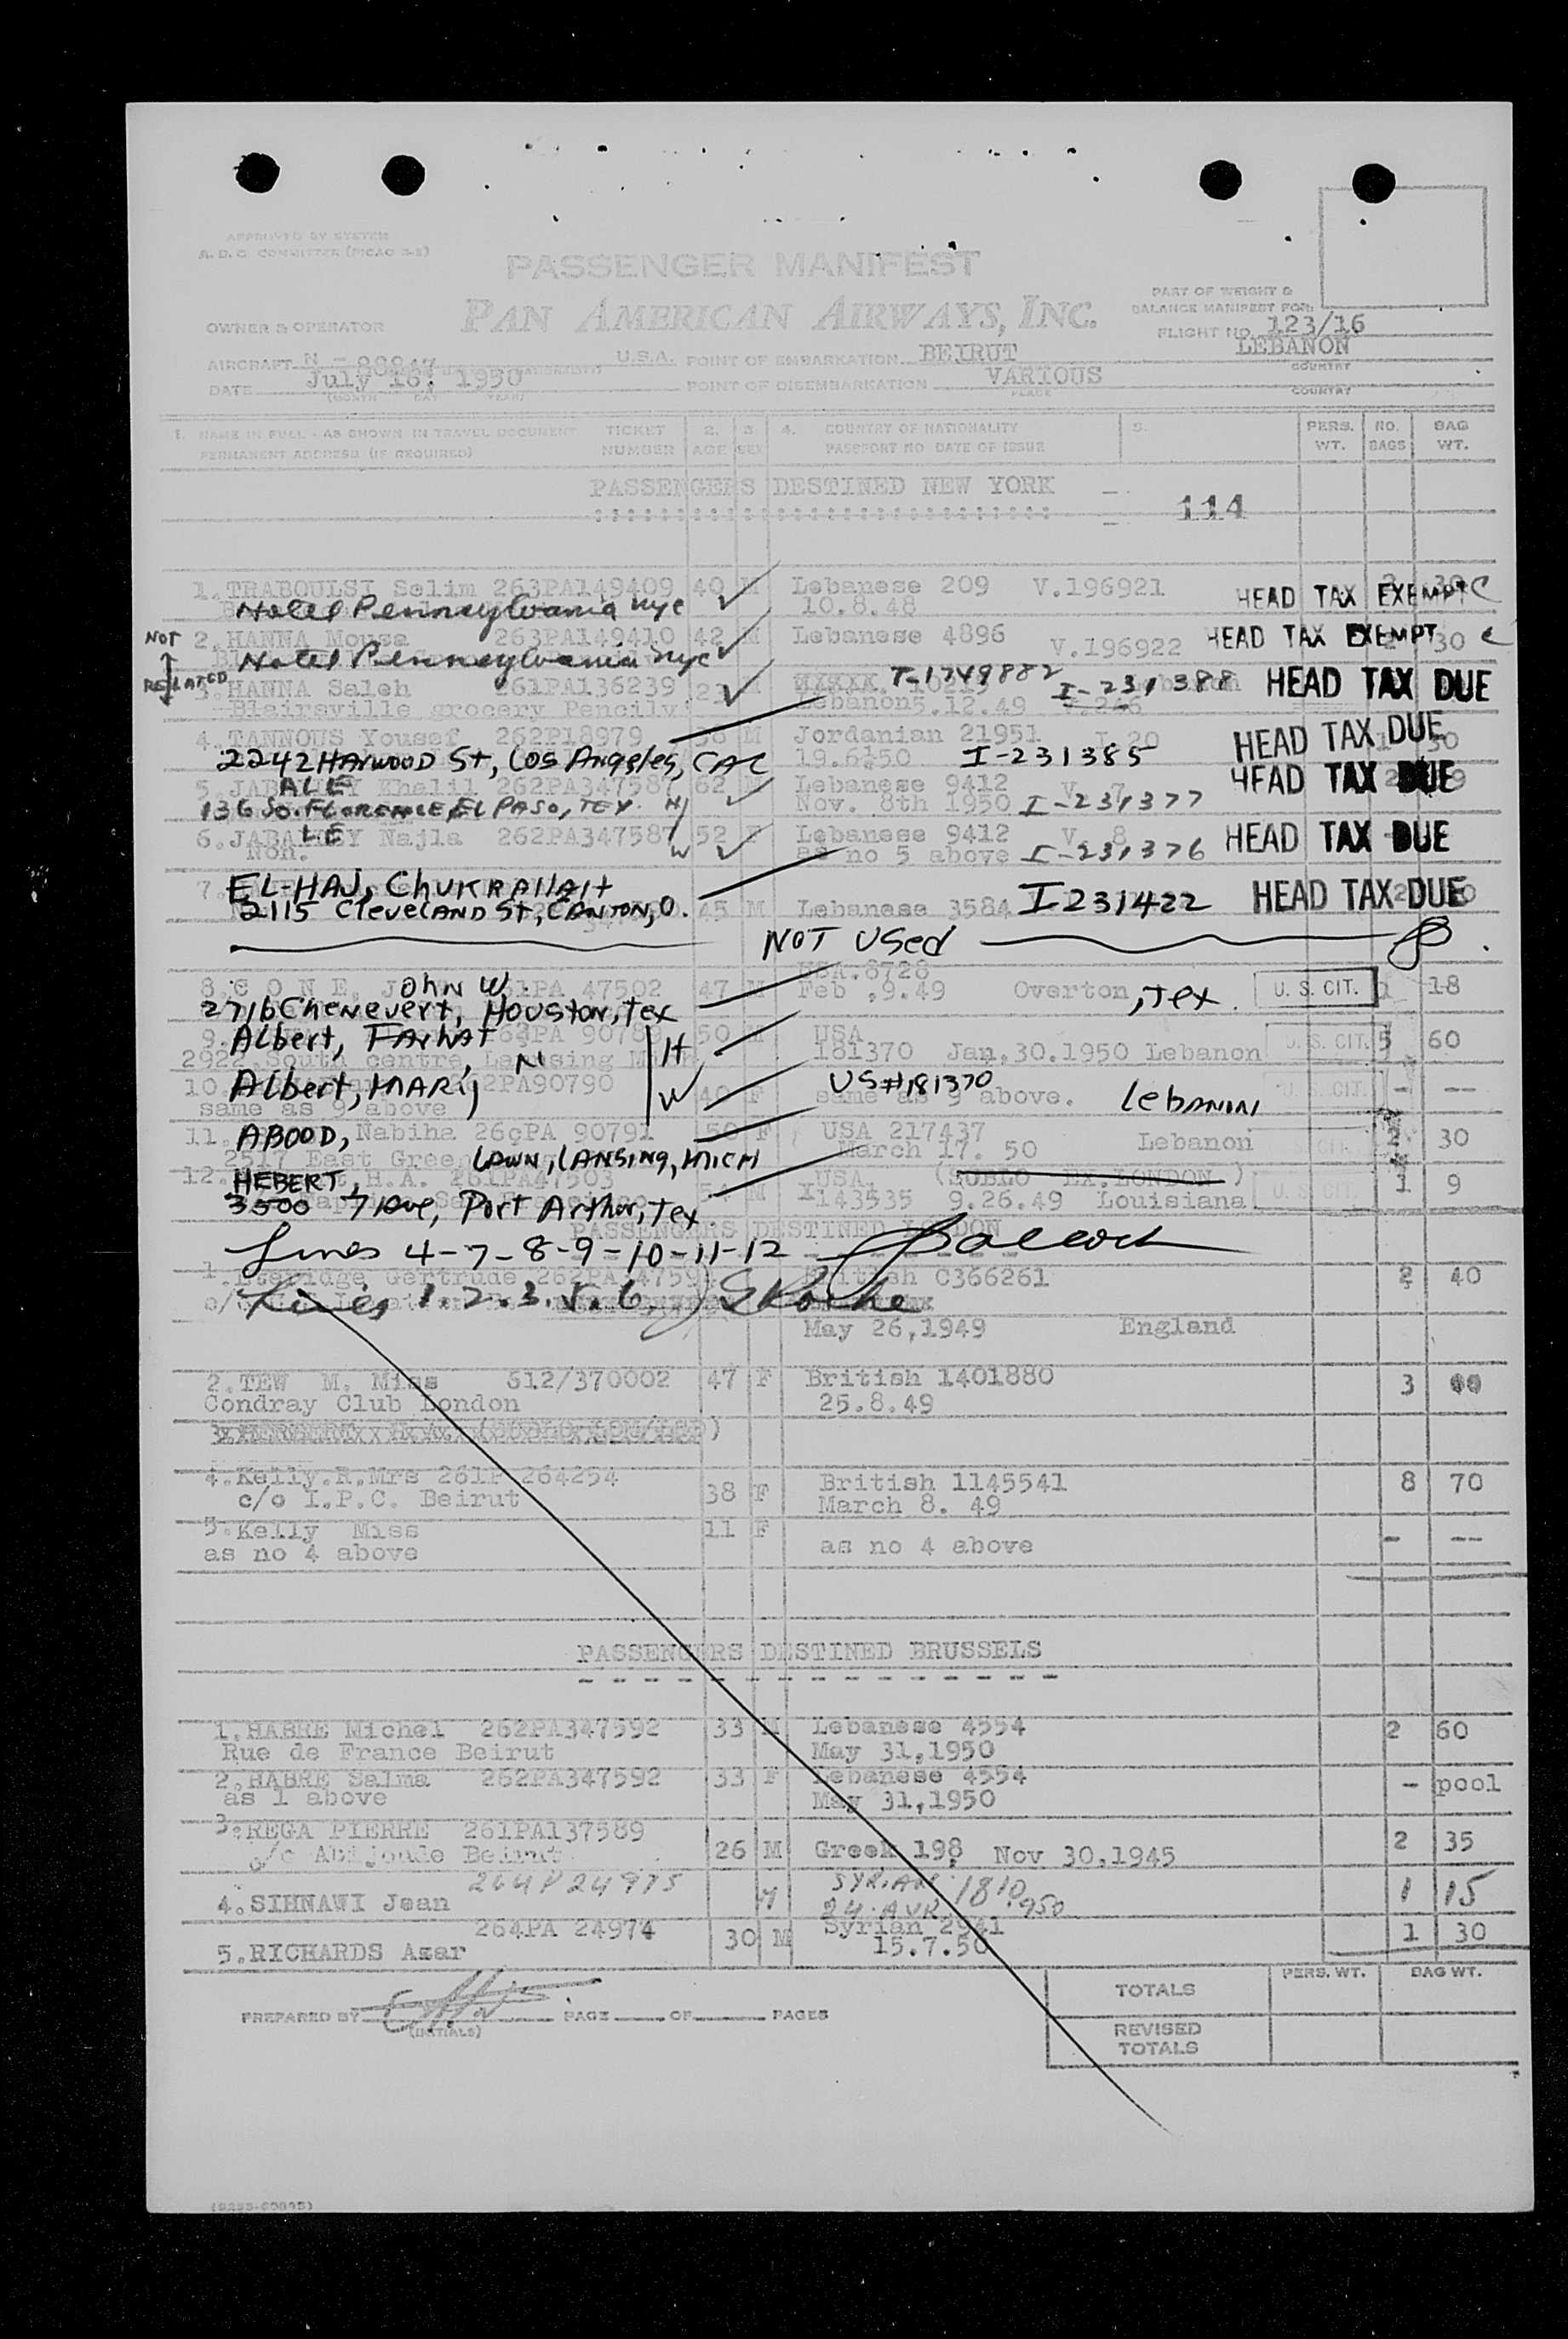 APPROVED BY SYSTEM
A. D. C. COMMITTEE (PICAO 2-2)
PASSENGER MANIFEST
PAN AMERICAN AIRWAYS, INC.
PART OF WEIGHT &
BALANCE MANIFEST FOR:
FLIGHT NO. 123/16
OWNER & OPERATOR
AIRCRAFT N - U.S.A. POINT OF EMBARKATION BEIRUT LEBANON
COUNTRY
DATE July 16, 1950 POINT OF DISEMBARKATION VARIOUS
(MONTH DAY YEAR) PLACE COUNTRY
1. NAME IN FULL - AS SHOWN IN TRAVEL DOCUMENT TICKET 2. 3. 4. COUNTRY OF NATIONALITY 5. PERS. NO. BAG
PERMANENT ADDRESS (IF REQUIRED) NUMBER AGE SEX PASSPORT NO DATE OF ISSUE WT. BAGS WT.
PASSENGERS DESTINED NEW YORK
114
1. TRABOULSI Selim 263PA149409 40 M Lebanese 209 V.196921 HEAD TAX EXEMPT C
Hotel Pennsylvania nyc 10.8.48
NOT 2. HANNA Mousa 263PA149410 42 M Lebanese 4896 V.196922 HEAD TAX EXEMPT 30 C
Hotel Pennsylvania nyc
RELATED 3. HANNA Saleh 261PA136239 21 M T-1749882 I-231388 HEAD TAX DUE
Blairsville grocery Pencilv Lebanon 5.12.49 V.246
4. TANNOUS Yousef 262P18979 36 M Jordanian 21951 I 20 HEAD TAX DUE
2242 HARWOOD St, LOS Angeles, CAL 19.6.50 I-231385
5. Khalil 262PA347587 62 M Lebanese 9412 V. 7 HEAD TAX DUE
ALE
136 So. FLORENCE, EL PASO, TEX. H Nov. 8th 1950 I-231377
LE
6. Najla 262PA347587 52 F Lebanese 9412 V. 8 HEAD TAX DUE
Non. W as no 5 above I-231376
7. EL-HAJ, CHUKRALLAH
2115 CleveLAND St, CANTON, O. 45 M Lebanese 3584 I 231422 HEAD TAX DUE
NOT Used
8. C O N E, John W. 261PA 47502 47 M USA.8728
2716 Chenevert, Houston, Tex Feb .9.49 Overton, Tex. U. S. CIT. 1 18
9. Albert, Farhat 50 M USA
2922 South centre Lansing H 181370 Jan.30.1950 Lebanon U. S. CIT. 5 60
10. Albert, MARY 2PA90790 W 40 F US#181370 Lebanon U. S. CIT. - --
same as 9 above same as 9 above.
11. ABOOD, Nabiha PA 90791 50 F USA 217437 Lebanon CIT. 2 30
East Green LAWN, LANSING, MICH March 17. 50
12. HEBERT, H.A. 261PA47503 54 M USA. (SUBLO EX.LONDON )
3500 7 Ave, Port Arthur, Tex. 143535 9.26.49 Louisiana U. S. CIT. 1 9
PASSENGERS DESTINED LONDON
Lines 4-7-8-9-10-11-12
1. Gertrude British C366261 2 40
Lines 1.2.3.5.6.
May 26,1949 England
2. TEW M. Miss 612/370002 47 F British 1401880 3
Condray Club London 25.8.49
4. Kelly.R.Mrs 261P 264254 38 F British 1145541 8 70
c/o I.P.C. Beirut March 8. 49
5. Kelly Miss 11 F
as no 4 above as no 4 above - --
PASSENGERS DESTINED BRUSSELS
1. HABRE Michel 262PA347592 33 M Lebanese 4554 2 60
Rue de France Beirut May 31,1950
2. HABRE Salma 262PA347592 33 F Lebanese 4554 - pool
as 1 above May 31,1950
3. REGA PIERRE 261PA137589 26 M Greek 198 Nov 30.1945 2 35
c/o Abijoude Beirut
264P24975 1810
4. SIHNAWI Jean M 24.AVR.950 1 15
264PA 24974 Syrian 2941
5. RICHARDS Azar 30 M 15.7.50 1 30
PERS. WT. BAG WT.
TOTALS
PREPARED BY PAGE OF PAGES
(INITIALS)
REVISED
TOTALS